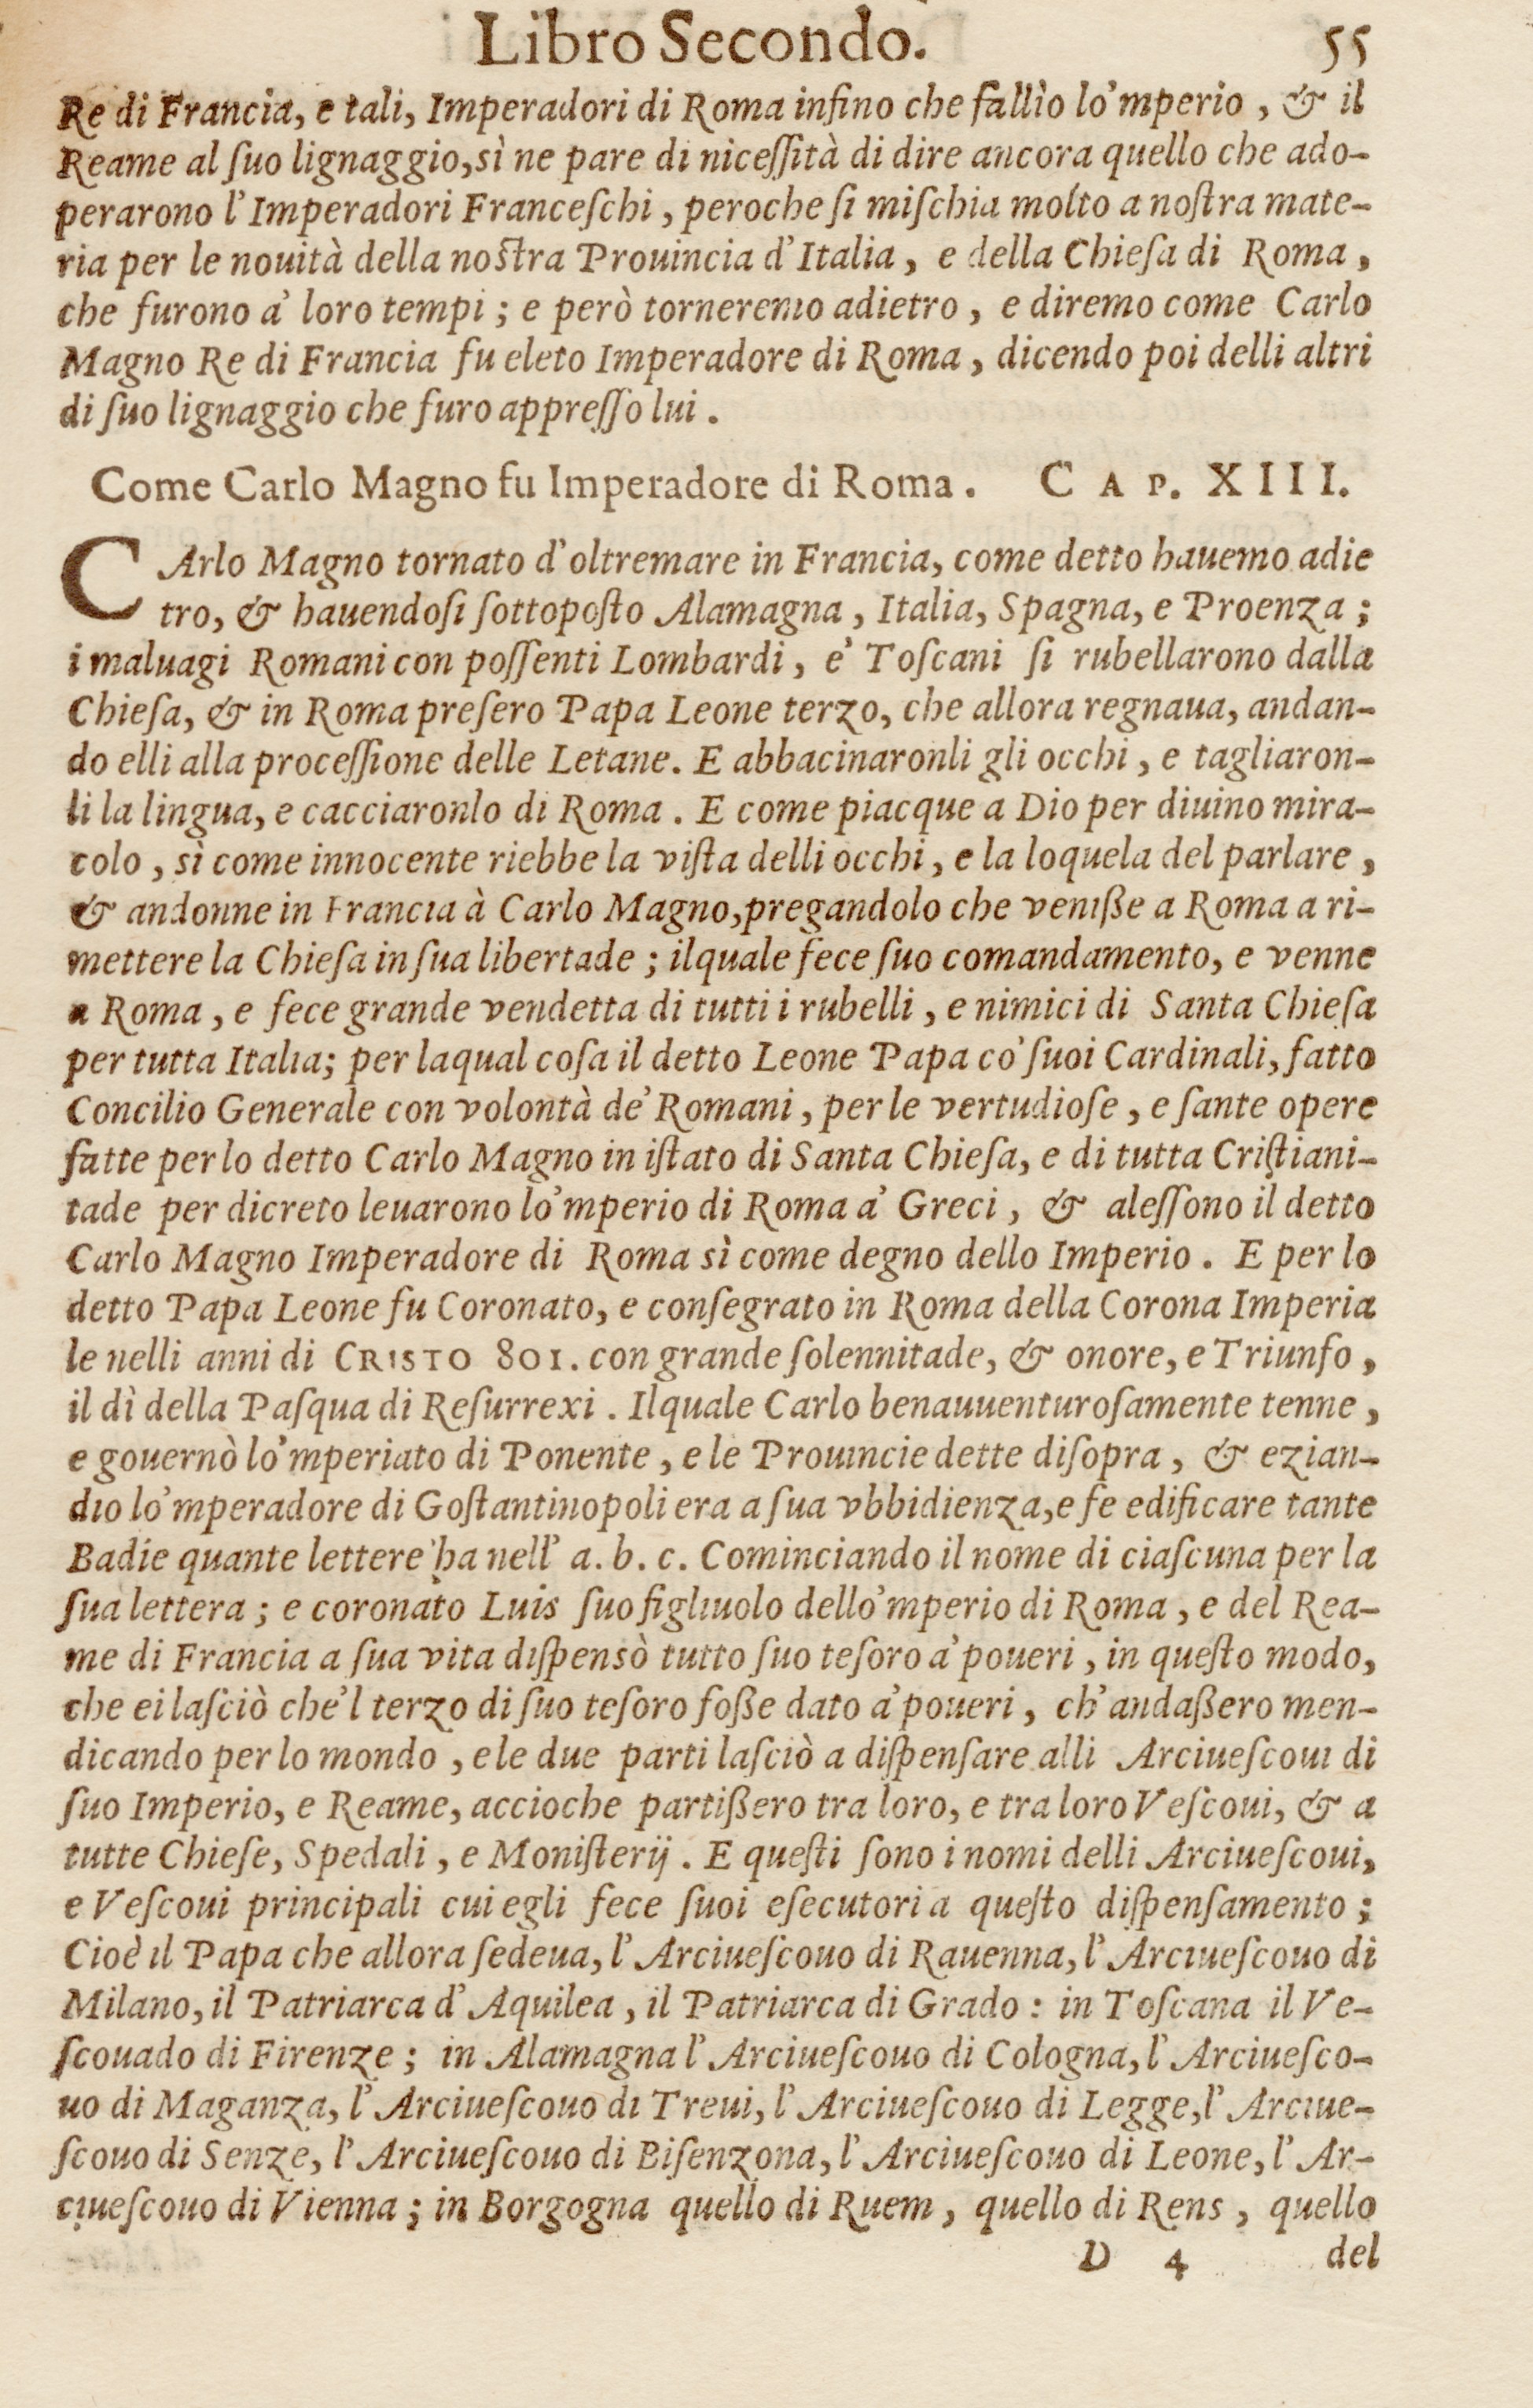 Libro Secondo. 55
Re di Francia, e tali, Imperadori di Roma infino che fallìo lo'mperio, & il
Reame al ſuo lignaggio, sì ne pare di niceſſità di dire ancora quello che ado-
perarono l'Imperadori Franceſchi, peroche ſi miſchia molto a noſtra mate-
ria per le nouità della noſtra Prouincia d'Italia, e della Chieſa di Roma,
che furono a' loro tempi; e però torneremo adietro, e diremo come Carlo
Magno Re di Francia fu eleto Imperadore di Roma, dicendo poi delli altri
di ſuo lignaggio che furo appreſſo lui.
Come Carlo Magno fu Imperadore di Roma. CAP. XIII.
CArlo Magno tornato d'oltremare in Francia, come detto hauemo adie
tro, & hauendoſi ſottopoſto Alamagna, Italia, Spagna, e Proenza;
i maluagi Romani con poſſenti Lombardi, e' Toſcani ſi rubellarono dalla
Chieſa, & in Roma preſero Papa Leone terzo, che allora regnaua, andan-
do elli alla proceſſione delle Letane. E abbacinaronli gli occhi, e tagliaron-
li la lingua, e cacciaronlo di Roma. E come piacque a Dio per diuino mira-
colo, sì come innocente riebbe la viſta delli occhi, e la loquela del parlare,
& andonne in Francia à Carlo Magno, pregandolo che veniße a Roma a ri-
mettere la Chieſa in ſua libertade; ilquale fece ſuo comandamento, e venne
a Roma, e fece grande vendetta di tutti i rubelli, e nimici di Santa Chieſa
per tutta Italia; per laqual coſa il detto Leone Papa co' ſuoi Cardinali, fatto
Concilio Generale con volontà de' Romani, per le vertudioſe, e ſante opere
fatte per lo detto Carlo Magno in iſtato di Santa Chieſa, e di tutta Criſtiani-
tade per dicreto leuarono lo'mperio di Roma a' Greci, & aleſſono il detto
Carlo Magno Imperadore di Roma sì come degno dello Imperio. E per lo
detto Papa Leone fu Coronato, e conſegrato in Roma della Corona Imperia
le nelli anni di CRISTO 801. con grande ſolennitade, & onore, e Triunfo,
il dì della Paſqua di Reſurrexi. Ilquale Carlo benauuenturoſamente tenne,
e gouernò lo'mperiato di Ponente, e le Prouincie dette diſopra, & ezian-
dio lo'mperadore di Goſtantinopoli era a ſua vbbidienza, e fe edificare tante
Badie quante lettere ha nell' a. b. c. Cominciando il nome di ciaſcuna per la
ſua lettera; e coronato Luis ſuo figliuolo dello'mperio di Roma, e del Rea-
me di Francia a ſua vita diſpensò tutto ſuo teſoro a' poueri, in queſto modo,
che ei laſciò che'l terzo di ſuo teſoro foße dato a' poueri, ch'andaßero men-
dicando per lo mondo, e le due parti laſciò a diſpenſare alli Arciueſcoui di
ſuo Imperio, e Reame, accioche partißero tra loro, e tra loro Veſcoui, & a
tutte Chieſe, Spedali, e Moniſterij. E queſti ſono i nomi delli Arciueſcoui,
e Veſcoui principali cui egli fece ſuoi eſecutori a queſto diſpenſamento;
Cioè il Papa che allora ſedeua, l'Arciueſcouo di Rauenna, l'Arciueſcouo di
Milano, il Patriarca d'Aquilea, il Patriarca di Grado: in Toſcana il Ve-
ſcouado di Firenze; in Alamagna l'Arciueſcouo di Cologna, l'Arciueſco-
uo di Maganza, l'Arciueſcouo di Treui, l'Arciueſcouo di Legge, l'Arciue-
ſcouo di Senze, l'Arciueſcouo di Biſenzona, l'Arciueſcouo di Leone, l'Ar-
ciueſcouo di Vienna; in Borgogna quello di Ruem, quello di Rens, quello
D 4 del